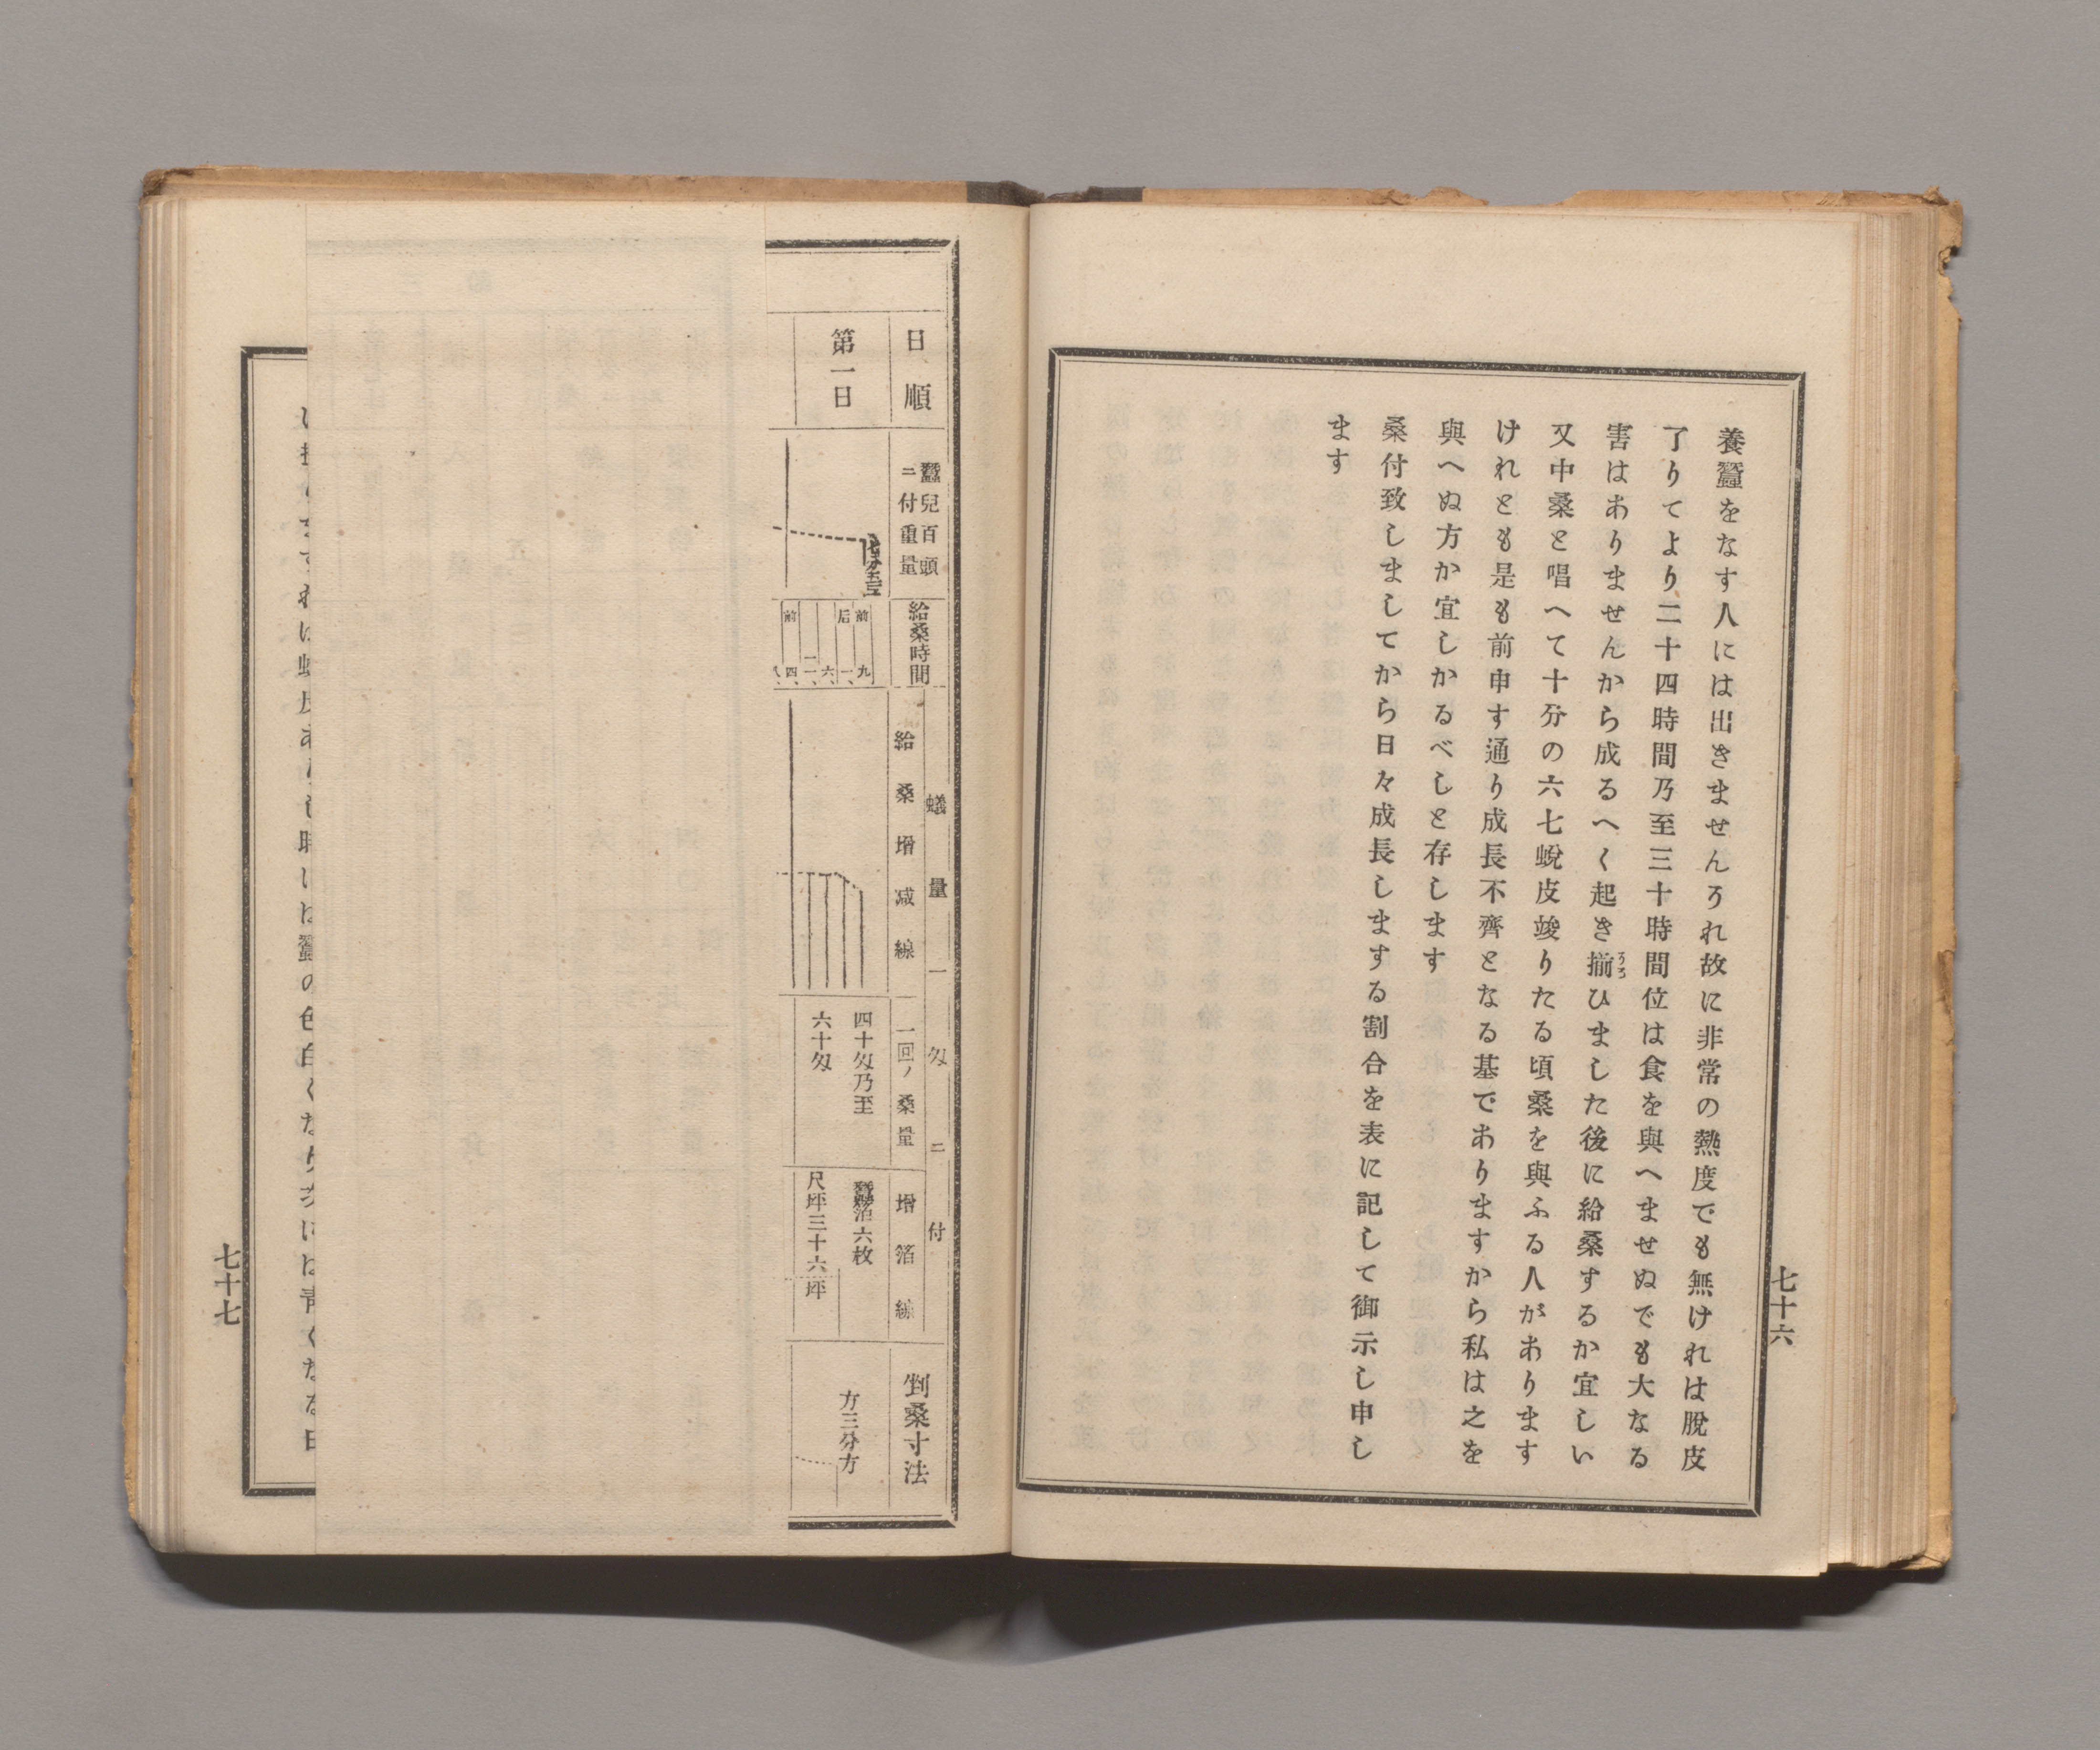 養蠶をなす人には出きませんそれ故に非常の熱度でも無けれは脫皮
了りてより二十四時間乃至三十時間位は食を與へませぬでも大なる
害はありませんから成るへく起き揃ひました後に給桑するか宜しい
そろ
又中桑と唱へて十分の六七蛻皮竣りたる頃桑を與ふる人があります
けれとも是も前申す通り成長不齊となる基でありますから私は之を
與へぬ方か宜しかるべしと存します
桑付致しましてから日々成長しまする割合を表に記して御示し申し
ます
七十六
日順
蠶兒百頭
ニ付重量
給桑時間
蟻量一匁ニ付
給桑增減線
一回ノ桑量
增箔線
剉桑寸法
第一日
前九、
后一、
六、
一一、
前四、
四十匁乃至
六十匁
蠶箔六枚
尺坪三十六坪
方三分方
時には蠶の色白くなり次には靑くなる
七十七